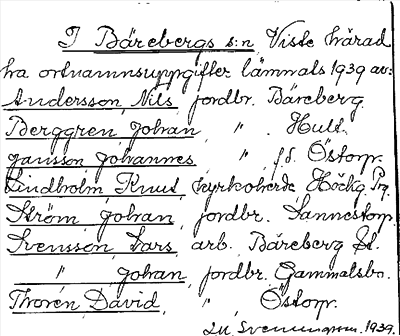 I Bärebergs s:n, Viste härad
ha ortnamnsuppgifter lämnats 1939 av:
Andersson, Nils, jordbr. Bäreberg.
Berggren, Johan, " . Hult.
Jansson, Johannes " , f.d. Östorp.
Lindholm, Knut, kyrkoherde, Prg.
Ström, Johan, jordbr. Sannestorp.
Svensson, Lars, arb., Bäreberg St.
" , Johan, jordbr. Gammalsbo.
Thorén, David, " , Östorp.
1939.